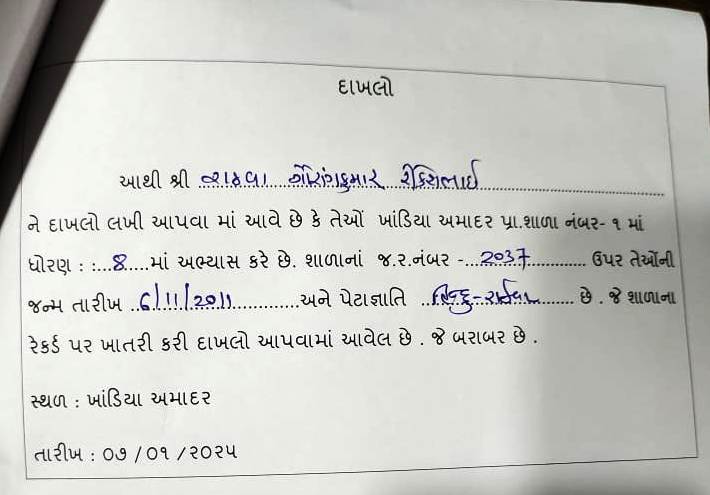 દાખલો
આથી શ્રી રાઠવા ગૌરાંગકુમાર
ને દાખલો લખી આપવા માં આવે છે કે તેઓં ખાંડિયા અમાદર પ્રા.શાળા નંબર- ૧ માં
ધોરણ : :...8....માં અભ્યાસ કરે છે. શાળાનાં જ.ર.નંબર -...2037............ ઉપર તેઓંની
જન્મ તારીખ ..6/11/2011............અને પેટાજ્ઞાતિ ..હિન્દુ-રાઠવા...... છે . જે શાળાના
રેકર્ડ પર ખાતરી કરી દાખલો આપવામાં આવેલ છે . જે બરાબર છે .
સ્થળ : ખાંડિયા અમાદર
તારીખ : ૦૭ /૦૧ /૨૦૨૫